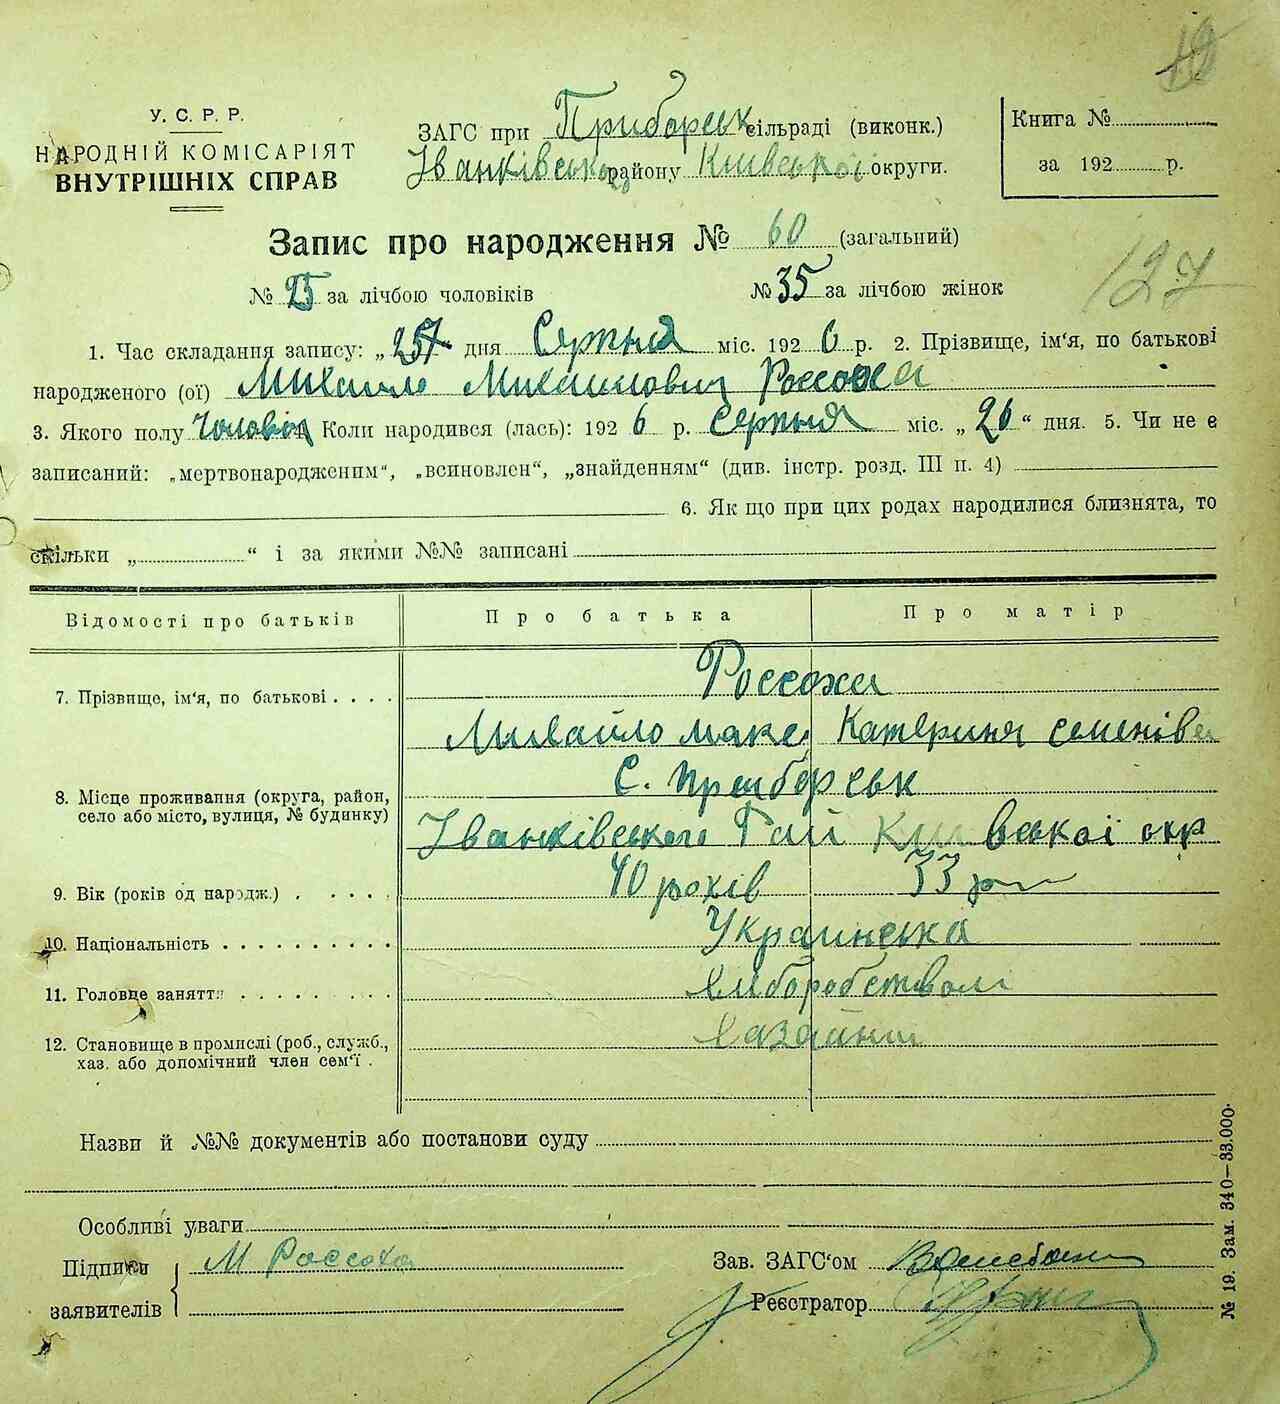 У. С. Р. Р.
НАРОДНІЙ КОМІСАРІЯТ
ВНУТРІШНІХ СПРАВ
ЗАГС при Приборськ сільраді (виконк.)
Іванківського району Київської округи.
Книга №
за 192 р.
Запис про народження № 60 (загальний)
№ 25 за лічбою чоловіків № 35 за лічбою жінок
127
1. Час складання запису: „ дня Серпня міс. 192 6 р. 2. Прізвище, ім'я, по батькові
народженого (ої) Михайло Михайлович Россоха
3. Якого полу Чоловік Коли народився (лась): 192 6 р. Серпня міс. „ 26 “ дня. 5. Чи не є
записаний: „мертвонародженим“, „всиновлен“, „знайденням“ (див. інстр. розд. III п. 4)
6. Як що при цих родах народилися близнята, то
скільки „ “ і за якими №№ записані
Відомості про батьків Про батька Про матір
7. Прізвище, ім'я, по батькові . . . . Россохи
Михайло макс Катерина семенівна
8. Місце проживання (округа, район, село або місто, вулиця, № будинку) С. Приборськ
Іванківського Рай Київської окр
9. Вік (років од народж.) . . . . . 40 років 33 р
10. Національність . . . . . . . . . . Українська
11. Головне заняття . . . . . . . . . Хліборобством
12. Становище в промислі (роб., служб.,
хаз. або допомічний член сем'ї .
Назви й №№ документів або постанови суду
Особливі уваги
Підписи
заявителів
М Россоха
Зав. ЗАГС'ом
Реєстратор
№ 19. Зам. 340—33.000.